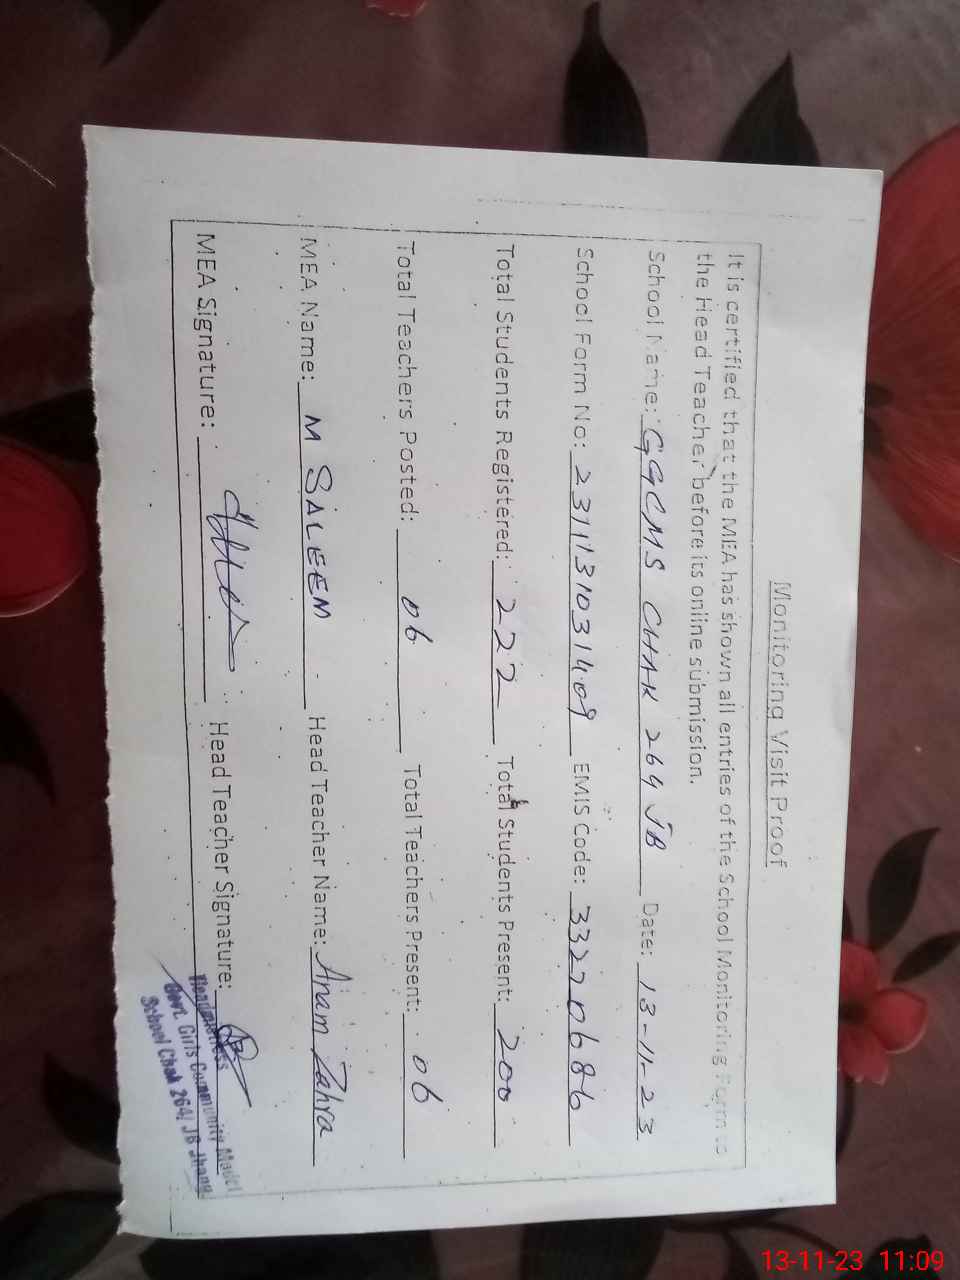 Monitoring Visit Proof
It is certified that the MEA has shown all entries of the School Monitoring Form to
the Head Teacher before its online submission.
School Name: GGCMS CHAK 264 JB Date: 13-11-23
School Form No: 231131031409 EMIS Code: 33270686
Total Students Registered: 222 Total Students Present: 200
Total Teachers Posted: 06 Total Teachers Present: 06
MEA Name: M SALEEM Head Teacher Name: Anam Zahra
MEA Signature: Head Teacher Signature:
Headmistress
Govt. Girls Community Model
School Chak 264/ JB Jhang
13-11-23 11:09